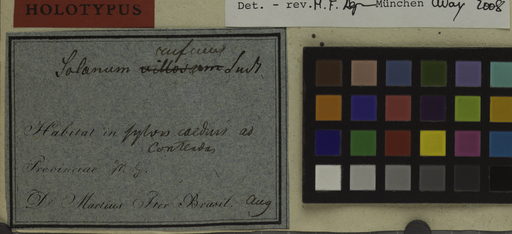 HOLOTYPUS
Det. - rev. M. F. Agra München May 2008
rufescens
Solanum villosum Sendt
Habitat in sylvis caeduis ad
Contendas
Provinciae M. G.
D. Martius Iter Brasil. Aug